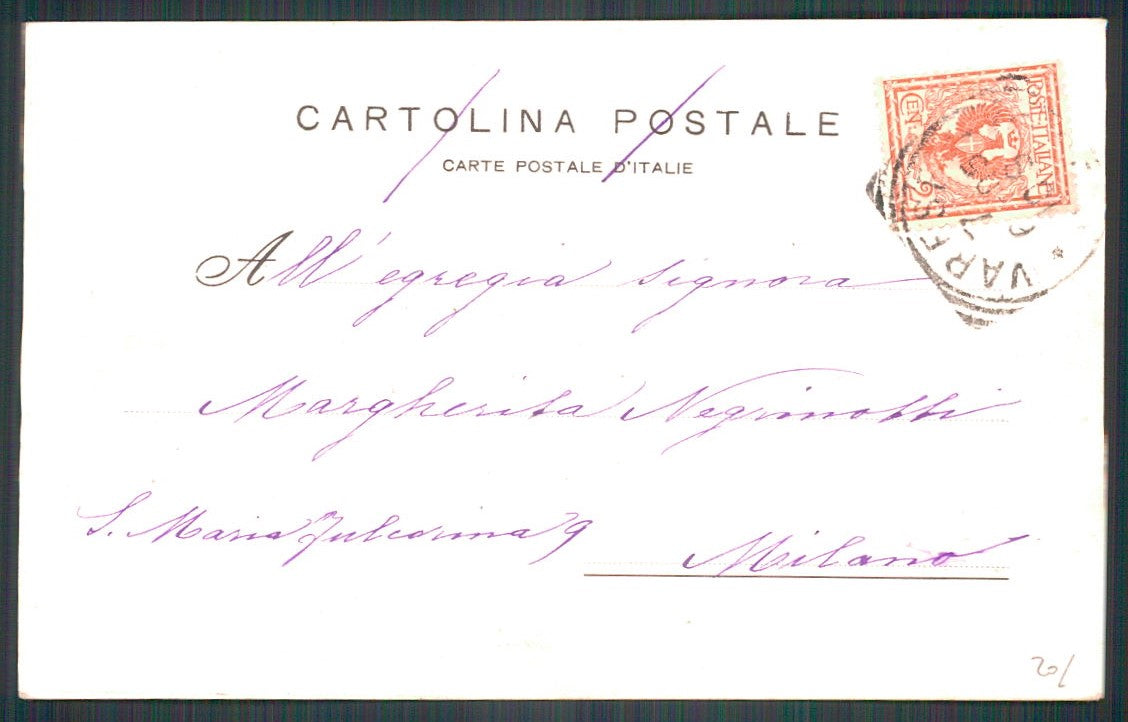 CARTOLINA POSTALE
CARTE POSTALE D'ITALIE
POSTE ITALIANE
CEN. 2
VARESE
All' egregia signora
Margherita Negrinotti
S. Maria Fulcorina 9
Milano
20/